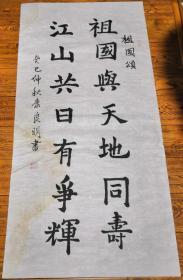 祖國頌
祖國與天地同壽
江山共日有爭輝
癸巳仲秋 良明書